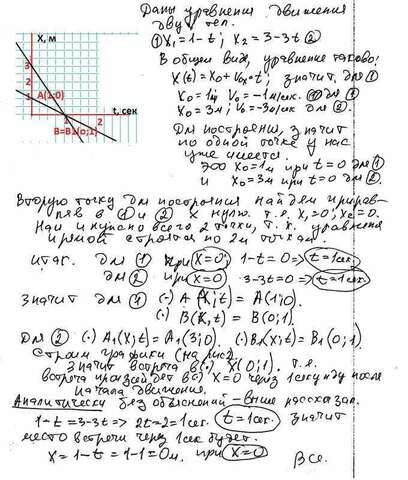 Даны уравнения движения
двух тел.
① X₁=1-t ; X₂=3-3t ②
В общем виде, уравнение таково:
X(t)=X₀+V₀ₓt; значит для ①
X₀=1м V₀=-1м/сек. для ②
X₀=3м; V₀=-3м/сек
Для построения, значит
по одной точке у нас
уже имеется.
это X₀=1м при t=0 для ①
и X₀=3м при t=0 для ②.
X, м
3
2
1
A(1;0)
t, сек
1
2
B=B1(0;1)
Вторую точку для построения найдем прирав-
няв в ① и ② X нулю. т.е. X₁=0; X₂=0.
Нам и нужно всего 2 точки, т.к. уравнения
прямой строятся по 2м точкам.
итак. для ① при X=0; 1-t=0 => t=1сек.
для ② при X=0 3-3t=0 => t=1сек.
значит для ① (·) A(X;t) = A(1;0).
(·) B(X;t) = B(0;1).
Для ② (·) A₁(X;t)=A₁(3;0). (·) B₁(X;t)=B₁(0;1).
Строим графики (на рис).
Значит встреча в (·) X(0;1). т.е.
встреча произойдет в (·) X=0 через 1 секунду после
начала движения.
Аналитически без объяснений - выше рассказал.
1-t=3-3t => 2t=2=1сек. t=1сек. значит
место встречи через 1сек будет.
X=1-t=1-1=0м. при X=0
Все.